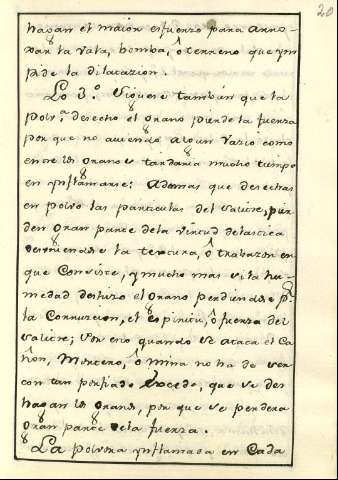 20
hagan el maior esfuerzo para arro-
xar la vala, bomba, ô terreno que ym
pide la dilatazion.
Lo 3.º Siguese tambien que la
polv.ª desecho el grano pierde la fuerza
por que no auiendo algun vazio como
entre los granos tardaria mucho tiempo
en ynflamarse: Ademas que desechas
en polvo las particulas del salitre, pier
den gran parte de la virtud delastica
destruiendose la textura, ô trabazon en
que Consiste, y mucho mas si la hu-
medad deshizo el grano perdiendose p.r
la Corrupcion, el espiritu, ô fuerza del
salitre; Por esto quando se ataca el Ca
ñon, Mortero, ô Mina no ha de ser
con tan porfiado Excedo, que se des
hagan los granos, por que se perdera
gran parte de la fuerza.
La polvora ynflamada en Cada